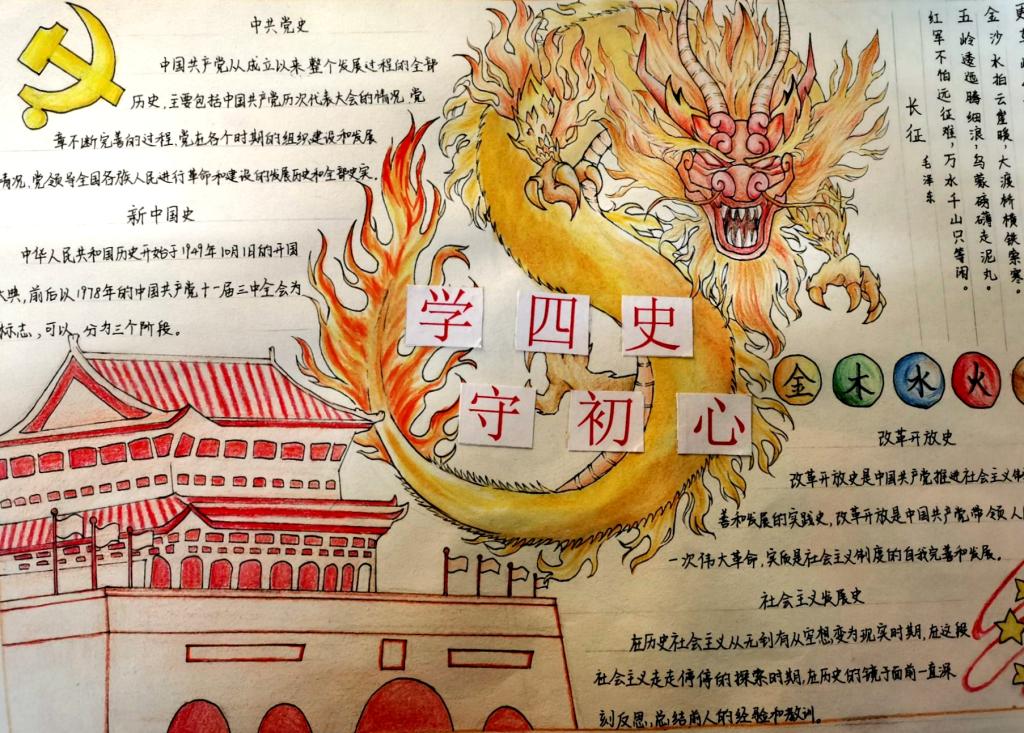 中共党史
中国共产党从成立以来整个发展过程的全部
历史,主要包括中国共产党历次代表大会的情况,党
章不断完善的过程,党在各个时期的组织建设和发展
情况,党领导全国各族人民进行革命和建设的发展历史和全部史实。
新中国史
中华人民共和国历史开始于1949年10月1日的开国
大典,前后以1978年的中国共产党十一届三中全会为
标志,可以分为三个阶段。
学四史
守初心
长征
毛泽东
红军不怕远征难,万水千山只等闲。
五岭逶迤腾细浪,乌蒙磅礴走泥丸。
金沙水拍云崖暖,大渡桥横铁索寒。
金木水火
改革开放史
改革开放史是中国共产党推进社会主义制
善和发展的实践史,改革开放是中国共产党带领人
一次伟大革命,实质是社会主义制度的自我完善和发展。
社会主义发展史
在历史社会主义从无到有从空想变为现实时期,在这段
社会主义走走停停的探索时期,在历史的镜子面前一直深
刻反思,总结前人的经验和教训。